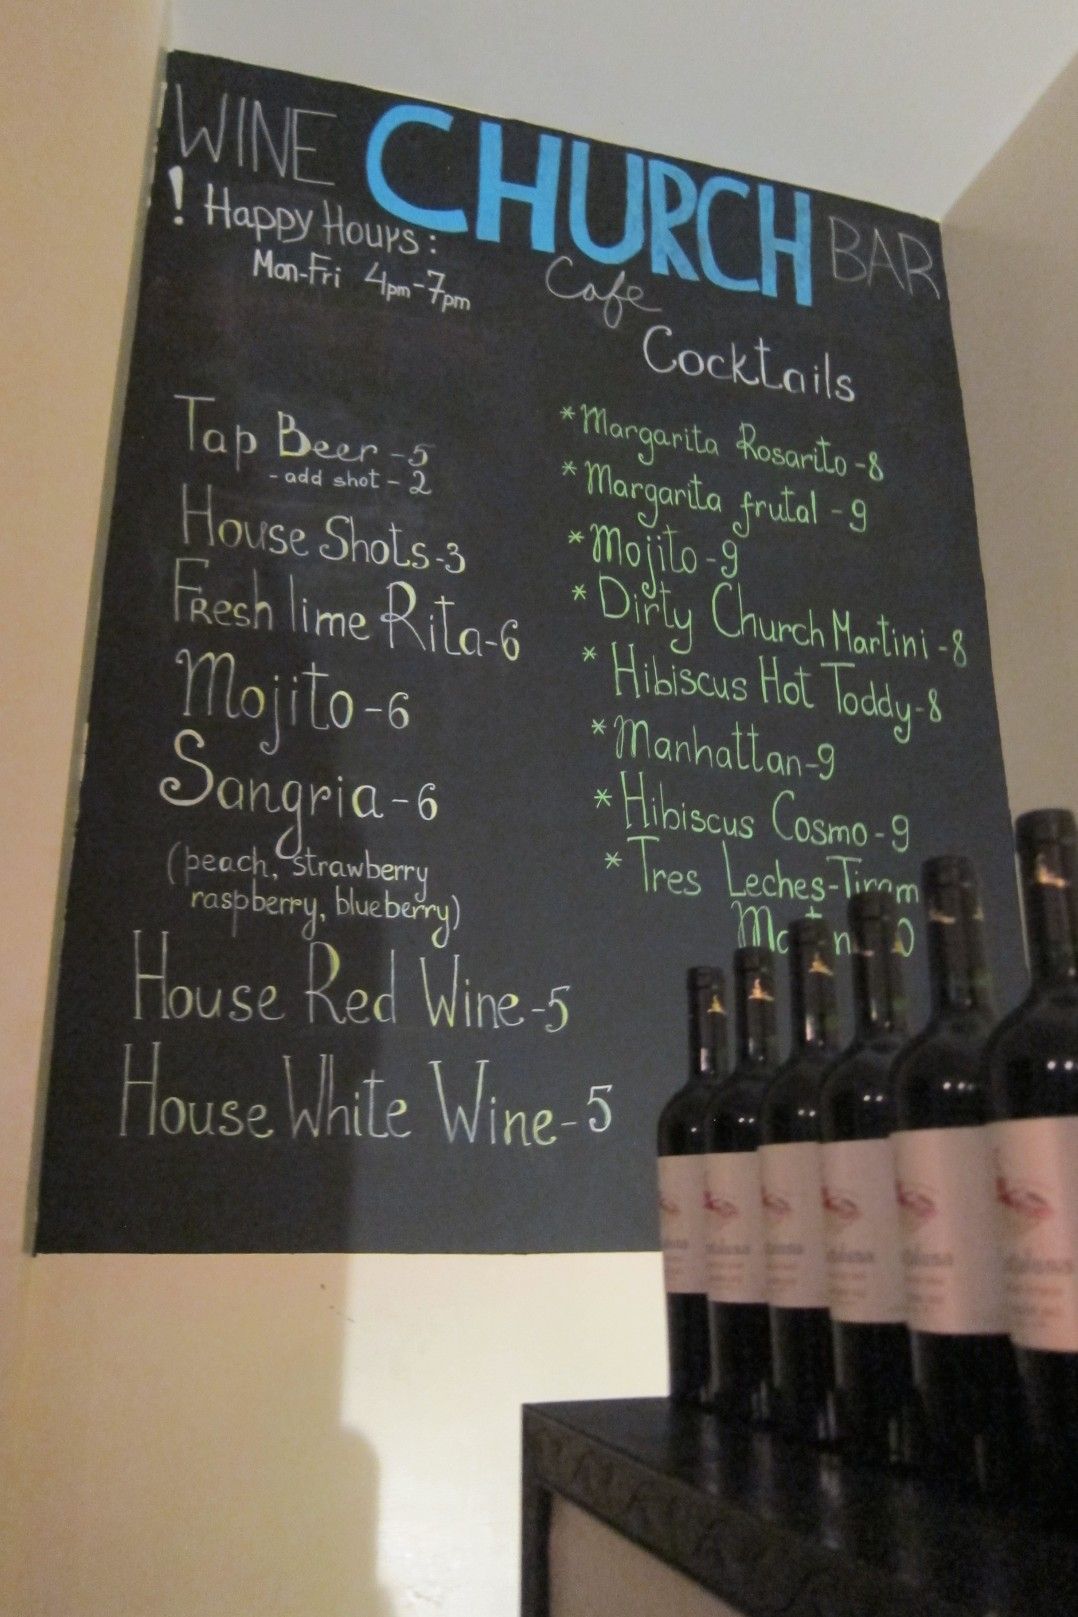 WINE CHURCH BAR
Cafe
! Happy Hours:
Mon-Fri 4pm-7pm
Tap Beer -5
- add shot - 2
House Shots-3
Fresh lime Rita-6
Mojito-6
Sangria-6
(peach, strawberry
raspberry, blueberry)
House Red Wine-5
House White Wine-5
Cocktails
*Margarita Rosarito-8
*Margarita frutal -9
*Mojito-9
*Dirty Church Martini -8
*Hibiscus Hot Toddy-8
*Manhattan-9
*Hibiscus Cosmo-9
*Tres Leches-